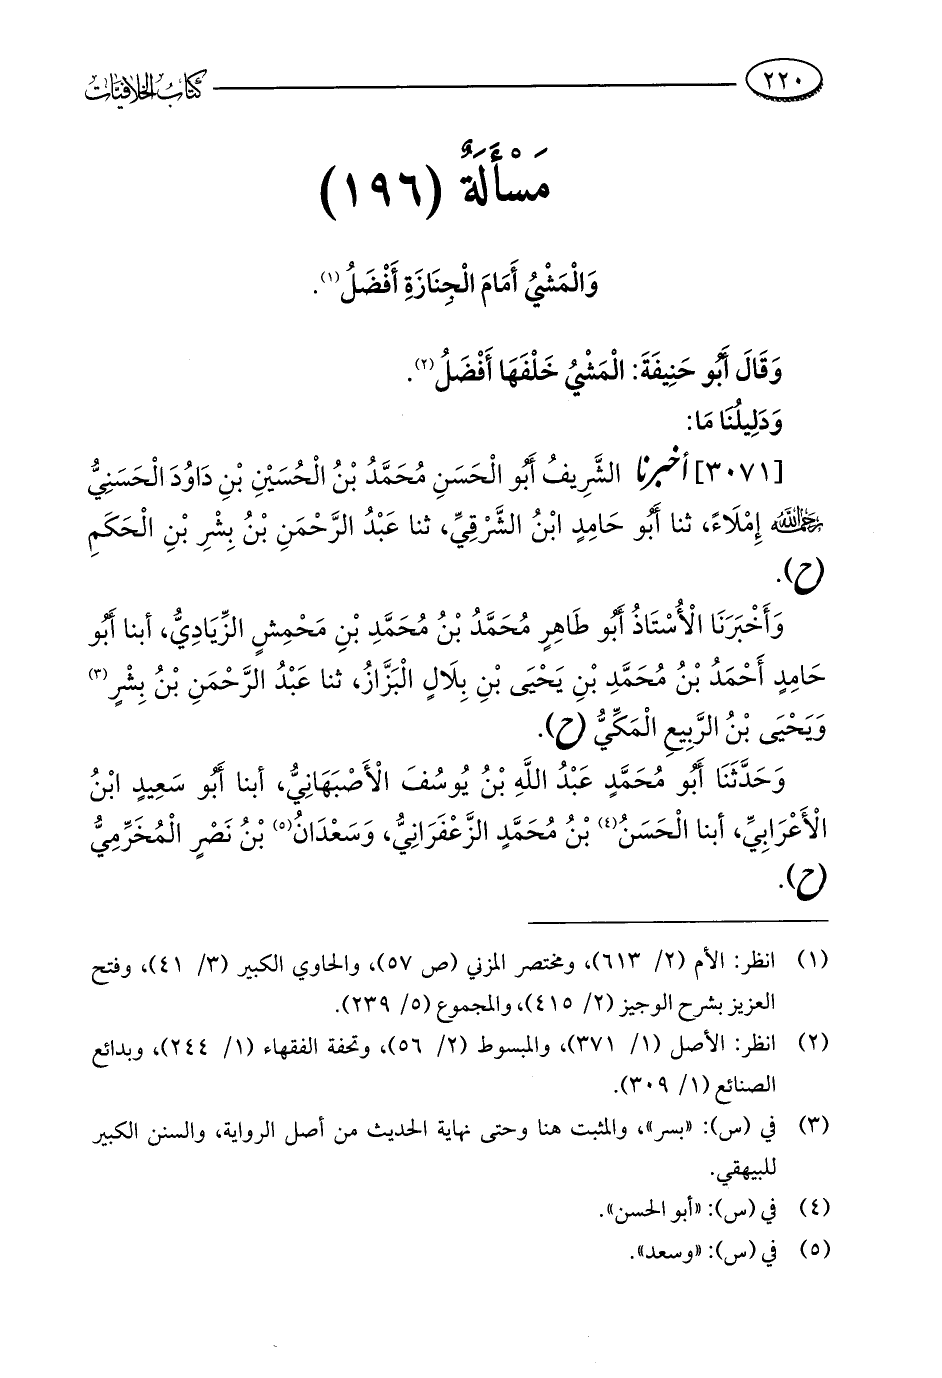 ٢٢٠ كتاب الخلافيات
مَسْأَلَةٌ (١٩٦)
وَالْمَشْيُ أَمَامَ الْجِنَازَةِ أَفْضَلُ(١).
وَقَالَ أَبُو حَنِيفَةَ: الْمَشْيُ خَلْفَهَا أَفْضَلُ(٢).
وَدَلِيلُنَا مَا:
[٣٠٧١] أخبرنا الشَّرِيفُ أَبُو الْحَسَنِ مُحَمَّدُ بْنُ الْحُسَيْنِ بْنِ دَاوُدَ الْحَسَنِيُّ
رحمه الله إِمْلَاءً، ثنا أَبُو حَامِدٍ ابْنُ الشَّرْقِيِّ، ثنا عَبْدُ الرَّحْمَنِ بْنُ بِشْرِ بْنِ الْحَكَمِ
(ح).
وَأَخْبَرَنَا الْأُسْتَاذُ أَبُو طَاهِرٍ مُحَمَّدُ بْنُ مُحَمَّدِ بْنِ مَحْمِشٍ الزِّيَادِيُّ، أبنا أَبُو
حَامِدٍ أَحْمَدُ بْنُ مُحَمَّدِ بْنِ يَحْيَى بْنِ بِلَالٍ الْبَزَّازُ، ثنا عَبْدُ الرَّحْمَنِ بْنُ بِشْرٍ(٣)
وَيَحْيَى بْنُ الرَّبِيعِ الْمَكِّيُّ (ح).
وَحَدَّثَنَا أَبُو مُحَمَّدٍ عَبْدُ اللَّهِ بْنُ يُوسُفَ الْأَصْبَهَانِيُّ، أبنا أَبُو سَعِيدٍ ابْنُ
الْأَعْرَابِيِّ، أبنا الْحَسَنُ(٤) بْنُ مُحَمَّدٍ الزَّعْفَرَانِيُّ، وَسَعْدَانُ(٥) بْنُ نَصْرٍ الْمُخَرِّمِيُّ
(ح).
(١) انظر: الأم (٢/ ٦١٣)، ومختصر المزني (ص ٥٧)، والحاوي الكبير (٣/ ٤١)، وفتح
العزيز بشرح الوجيز (٢/ ٤١٥)، والمجموع (٥/ ٢٣٩).
(٢) انظر: الأصل (١/ ٣٧١)، والمبسوط (٢/ ٥٦)، وتحفة الفقهاء (١/ ٢٤٤)، وبدائع
الصنائع (١/ ٣٠٩).
(٣) في (س): «بسر»، والمثبت هنا وحتى نهاية الحديث من أصل الرواية، والسنن الكبير
للبيهقي.
(٤) في (س): «أبو الحسن».
(٥) في (س): «وسعد».